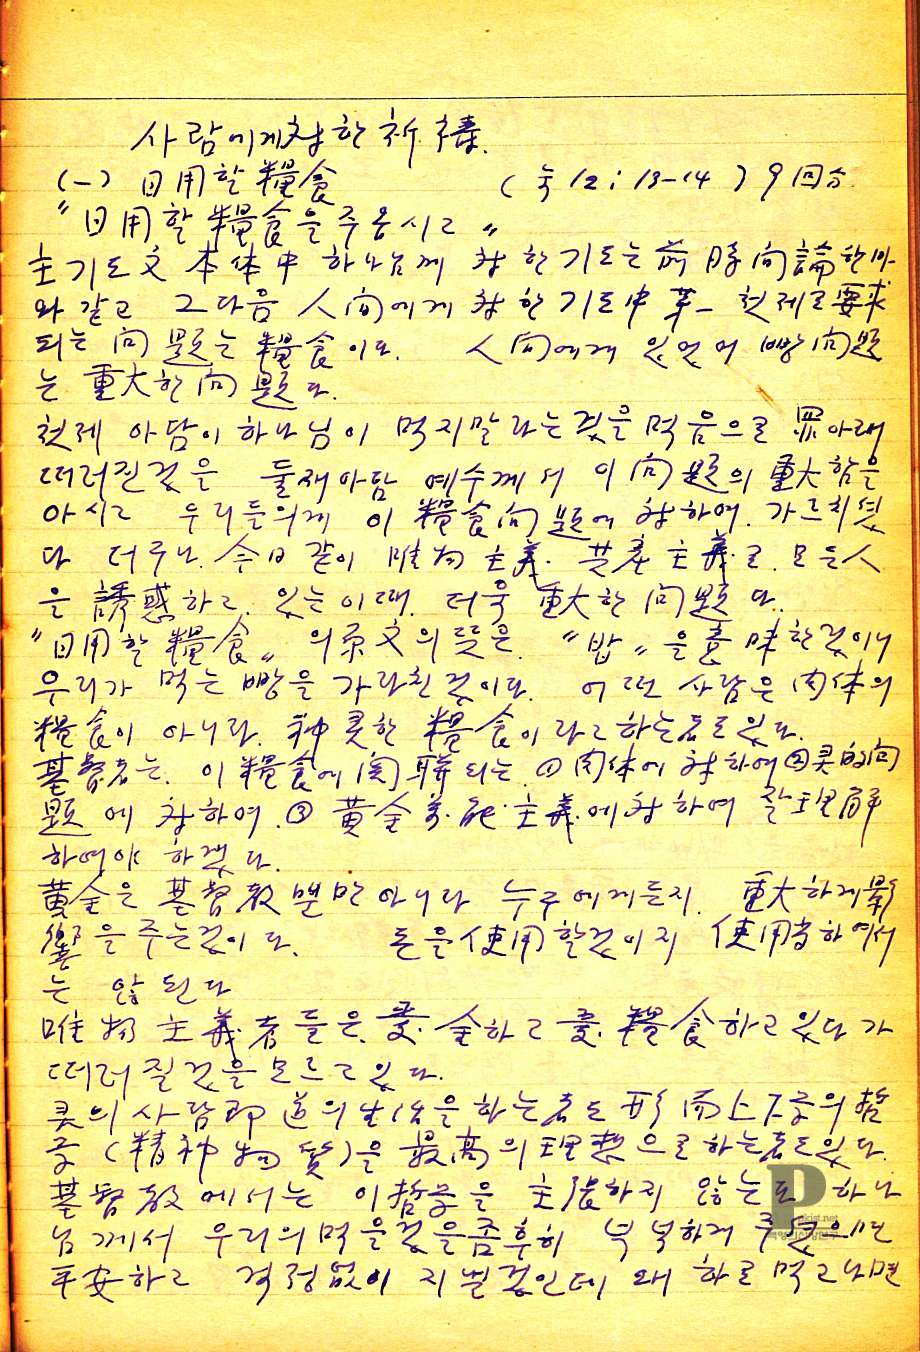 사람에게 対한 祈禱.
(一) 日用할 糧食 (눅 12 : 13-14) 9回分.
"日用할 糧食을 주옵시고"
主기도文 本体中 하나님께 対한 기도는 前時间論한바
와 같고 그다음 人间에게 対한 기도中 第一 첫제로 要求
되는 问题는 糧食이다. 人间에게 있었어 빵问题
는 重大한 问题다.
첫제 아담이 하나님이 먹지말라는것을 먹음으로 罪아래
떠러진것을 둘재아담 예수께서 이 问题의 重大함을
아시고 우리들의게 이 糧食问题에 対하여. 가르치셧
다 더구나. 今日 같이 唯物主義. 共産主義로. 모든人
을 誘惑하고. 있는이때. 더욱 重大한 问题다.
"日用할 糧食" 의 原文의 뜻은. "밥" 을 意味한것이니
우리가 먹는 빵을 가라친것이다. 어떤 사람은 肉体의
糧食이 아니라. 神灵한 糧食이라고하는者도있다.
基督者는. 이 糧食에 関聯되는 ① 肉体에 対하여 ②灵的问
题에 対하여. ③ 黄金万能主義에対하여 잘理解
하여야 하겠다.
黄金은 基督教뿐만 아니라 누구에게든지. 重大하게影
響을주는것이다. 돈을使用할것이지 使用当하여서
는 않된다
唯物主義者들은. 愛.金하고 愛.糧食하고있다가
떠러질것을모르고있다.
灵의 사람即 道의生活을하는者는 形而上下学의 哲
学(精神物質)을 最高의理想으로하는者도있다.
基督教에서는 이哲学을 主張하지 않는도 하나
님께서 우리의먹을것을좀후히 북북하게 주셧으면
平安하고 걱정없이 지낼것인데 왜 하로 먹고나면